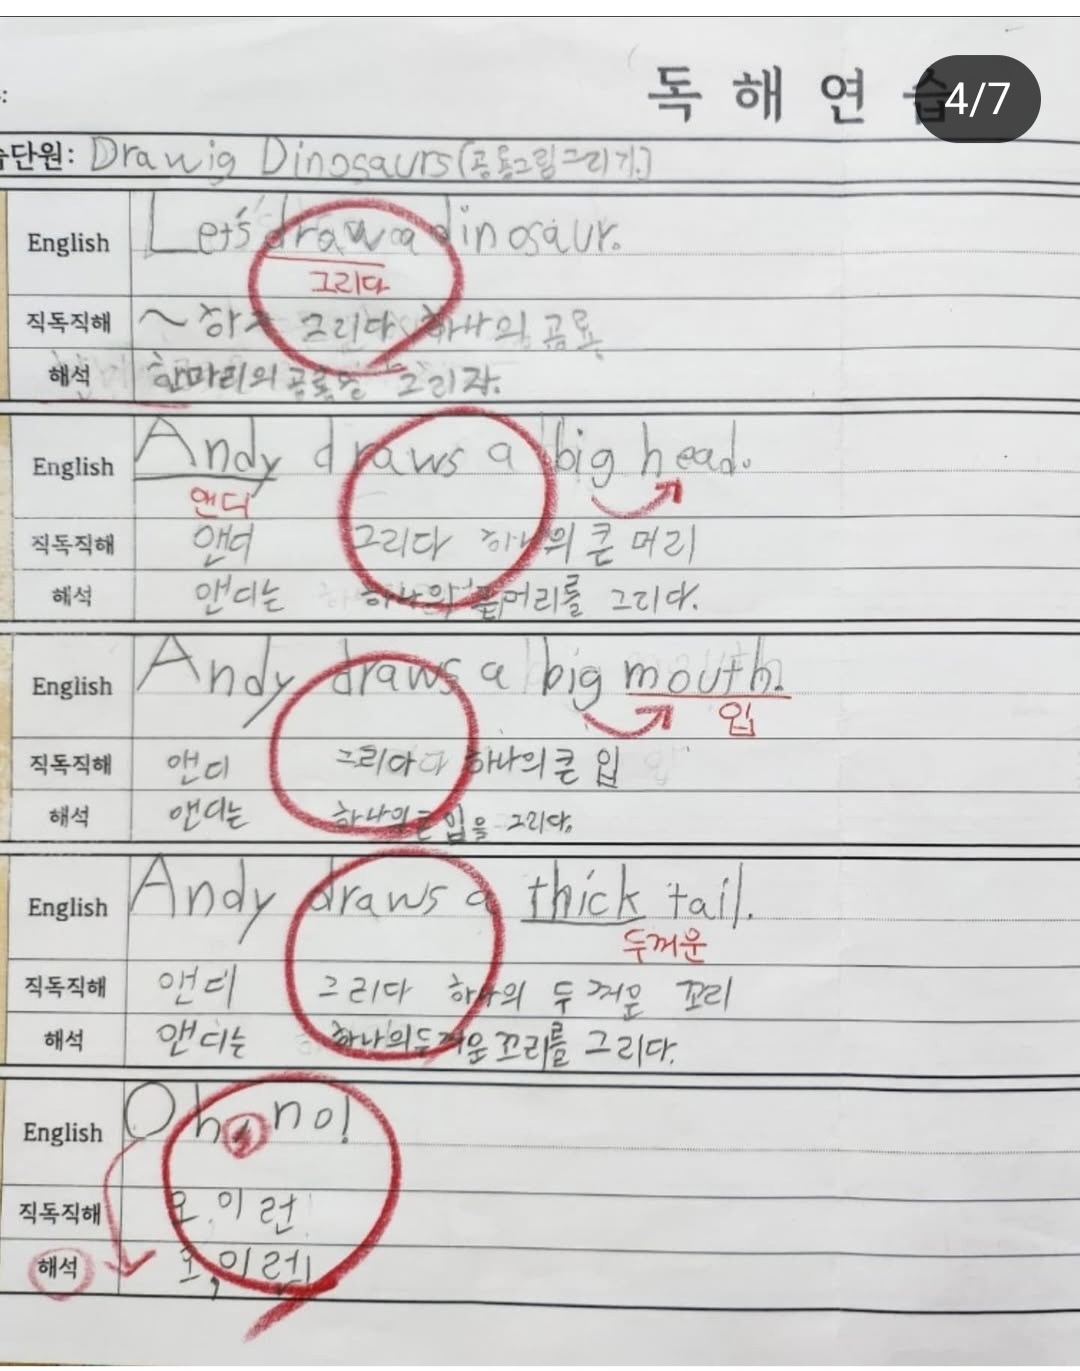 독 해 연 습 4/7
단원: Drawig Dinosaurs(공룡그림그리기)
English Let's draw a dinosaur.
그리다
직독직해 ~하자 그리다 하나의 공룡
해석 한마리의 공룡을 그리자.
English Andy draws a big head.
앤디
직독직해 앤디 그리다 하나의 큰 머리
해석 앤디는 하나의 큰 머리를 그리다.
English Andy draws a big mouth.
입
직독직해 앤디 그리다 하나의 큰 입
해석 앤디는 하나의 큰 입을 그리다.
English Andy draws a thick tail.
두꺼운
직독직해 앤디 그리다 하나의 두꺼운 꼬리
해석 앤디는 하나의 두꺼운 꼬리를 그리다.
English Oh, no!
직독직해 오, 이런!
해석 오, 이런!